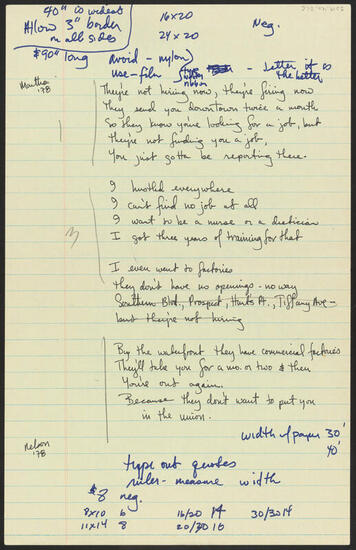 40" is widest
Allow 3" border
on all sides
$90" long
16x20
24x20
Neg.
avoid - nylon
use - film ribbon - Letter it is
the better
Martha
'78
They're not hiring now, they're firing now
They send you downtown twice a month
So they know you're looking for a job, but
they're not finding you a job,
You just gotta be reporting there.
I hustled everywhere
I can't find no job at all
I want to be a nurse or a dietician
I got three years of training for that
3
I even went to factories
they don't have no openings - no way
Southern Blvd., Prospect, Hunts Pt., Tiffany Ave -
but they're not hiring
By the waterfront they have commercial factories
They'll take you for a mo. or two & then
You're out again.
Because they don't want to put you
in the union.
Nelson
'78
width of paper 30'
40'
type out quotes
ruler - measure width
$8 neg.
8x10 6 16/20 14 30/30 14
11x14 8 20/30 16